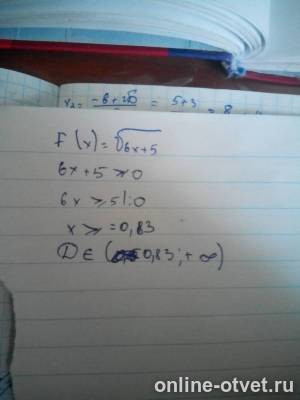 x₂ = -b+√D = 5+3 = 8
F(x)=√6x+5
6x+5≥0
6x≥5|:0
x≥=0,83
D∈(0,83;+∞)
online-otvet.ru